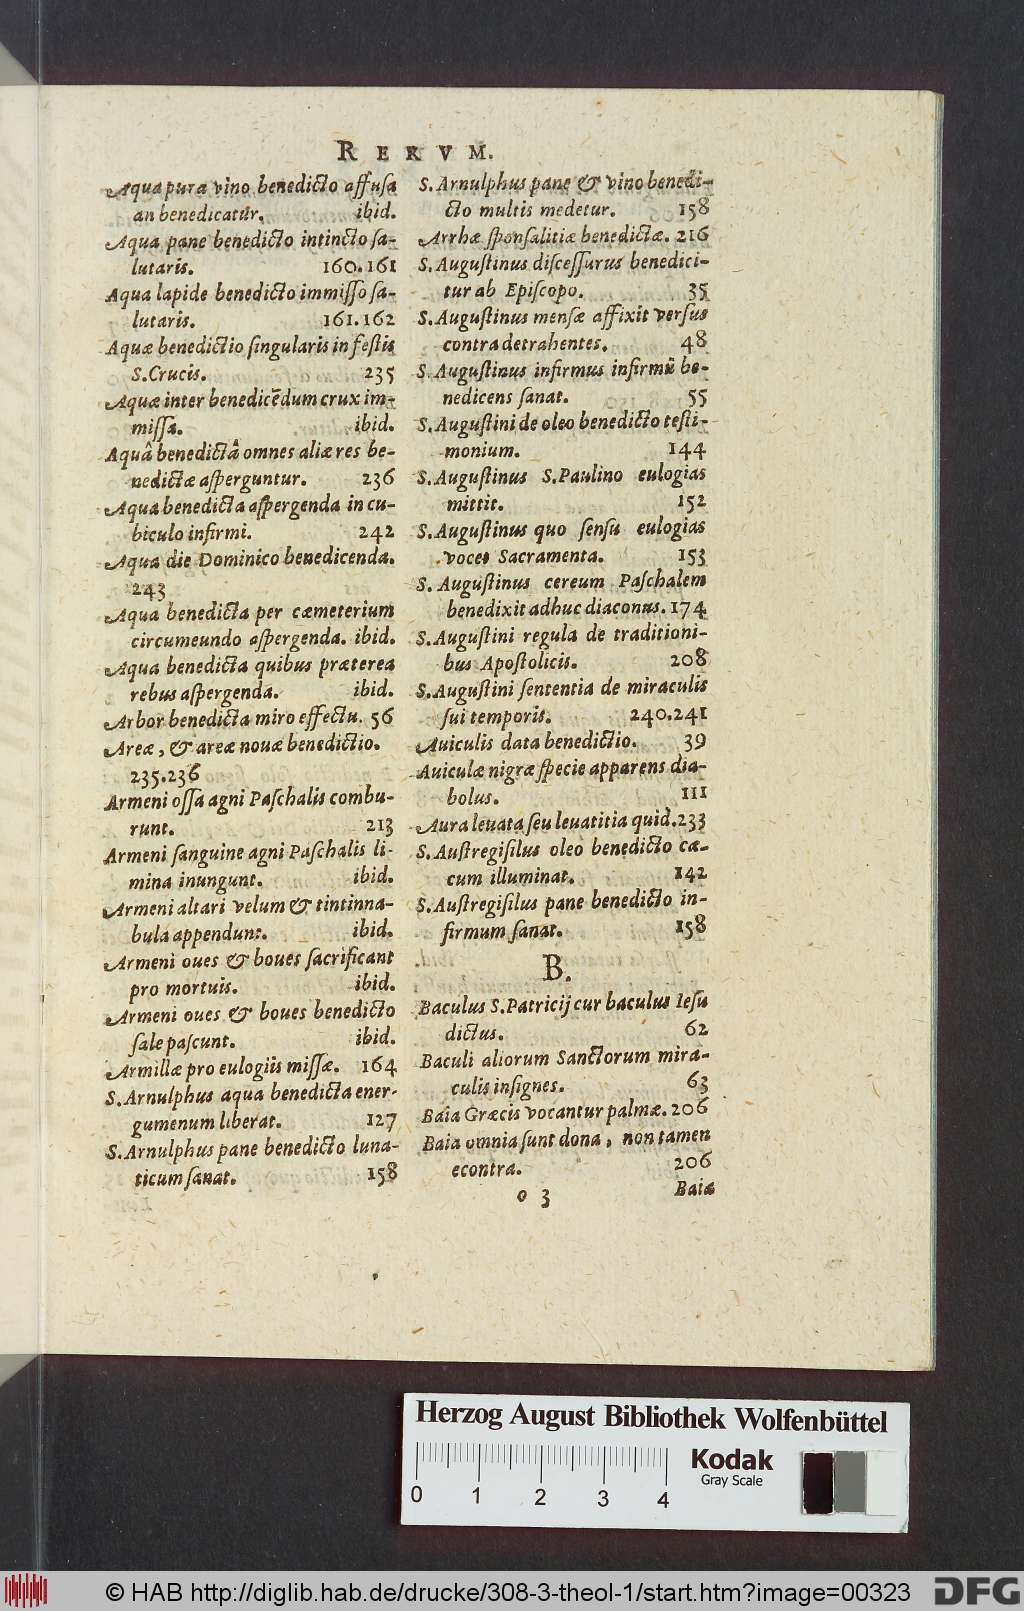 RERVM.
Aqua pura vino benedicto affuſa
an benedicatur. ibid.
Aqua pane benedicto intincto ſa-
lutaris. 160.161
Aqua lapide benedicto immiſſo ſa-
lutaris. 161.162
Aquæ benedictio ſingularis in feſtis
S.Crucis. 235
Aquæ inter benedicēdum crux im-
miſſa. ibid.
Aquâ benedictâ omnes aliæ res be-
nedictæ aſperguntur. 236
Aqua benedicta aſpergenda in cu-
biculo infirmi. 242
Aqua die Dominico benedicenda.
243
Aqua benedicta per cæmeterium
circumeundo aſpergenda. ibid.
Aqua benedicta quibus præterea
rebus aſpergenda. ibid.
Arbor benedicta miro effectu. 56
Areæ, & areæ nouæ benedictio.
235.236
Armeni oſſa agni Paſchalis combu-
runt. 213
Armeni ſanguine agni Paſchalis li-
mina inungunt. ibid.
Armeni altari velum & tintinna-
bula appendunt. ibid.
Armeni oues & boues ſacrificant
pro mortuis. ibid.
Armeni oues & boues benedicto
ſale paſcunt. ibid.
Armillæ pro eulogiis miſſæ. 164
S.Arnulphus aqua benedicta ener-
gumenum liberat. 127
S.Arnulphus pane benedicto luna-
ticum ſanat. 158
S.Arnulphus pane & vino benedi-
cto multis medetur. 158
Arrhæ ſponſalitiæ benedictæ. 216
S.Auguſtinus diſceſſurus benedici-
tur ab Epiſcopo. 35
S.Auguſtinus menſæ affixit verſus
contra detrahentes. 48
S.Auguſtinus infirmus infirmū be-
nedicens ſanat. 55
S.Auguſtini de oleo benedicto teſti-
monium. 144
S.Auguſtinus S.Paulino eulogias
mittit. 152
S.Auguſtinus quo ſenſu eulogias
voces Sacramenta. 153
S.Auguſtinus cereum Paſchalem
benedixit adhuc diaconus. 174
S.Auguſtini regula de traditioni-
bus Apoſtolicis. 208
S.Auguſtini ſententia de miraculis
ſui temporis. 240.241
Auiculis data benedictio. 39
Auiculæ nigræ ſpecie apparens dia-
bolus. 111
Aura leuata ſeu leuatitia quid. 233
S.Auſtregiſilus oleo benedicto cæ-
cum illuminat. 142
S.Auſtregiſilus pane benedicto in-
firmum ſanat. 158
B.
Baculus S.Patricij cur baculus Ieſu
dictus. 62
Baculi aliorum Sanctorum mira-
culis inſignes. 63
Baia Græcis vocantur palmæ. 206
Baia omnia ſunt dona, non tamen
econtra. 206
o 3 Baiæ
Herzog August Bibliothek Wolfenbüttel
Kodak
Gray Scale
0 1 2 3 4
© HAB http://diglib.hab.de/drucke/308-3-theol-1/start.htm?image=00323 DFG